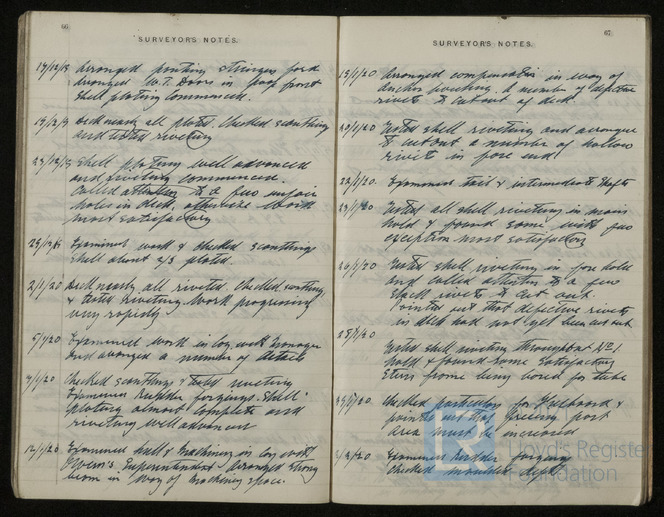 66
SURVEYOR'S NOTES.
Arranged panting stringers ford
Arranged W.T. Doors in poop front
Shell plating commenced.
Deck nearly all plated. Checked scantling
and tested riveting
Shell plating well advanced
and riveting commenced.
Called attention to a few unfair
holes in deck, otherwise work
most satisfactory
Examined work & checked scantlings
Shell about 2/3 plated.
2/1/20 Deck nearly all riveted. Checked scantlings
& tested riveting. Work progressing
very rapidly
5/1/20 Examined work in Coy with Manager
and arranged a number of details
Checked scantlings & tested riveting
Examined Rudder forgings. Shell
plating almost complete and
riveting well advanced
12/1/20 Examined hull & Machinery in Coy with
Owner's Superintendent & arranged strong
beam in way of machinery space.
67
SURVEYOR'S NOTES.
15/1/20 Arranged compensation in way of
anchor housing. A number of defective
rivets to cut out of deck
20/1/20 Tested shell riveting and arranged
to cut out a number of hollow
rivets in fore end
22/1/20. Examined tail & intermediate shafts
23/1/20 Tested all shell riveting in main
hold & found same with few
exception most satisfactory
26/1/20 Tested shell riveting in fore hold
and called attention to a few
slack rivets to cut out.
Pointed out that defective rivets
in deck had not yet been cut out
Tested shell riveting throughout No 1
hold & found same satisfactory
Stern frame being bored for tube
Checked particulars for Freeboard &
pointed out that freeing port
area must be increased
Examined Rudder forgings
Checked moulded depth
Lloyd's Register
Foundation